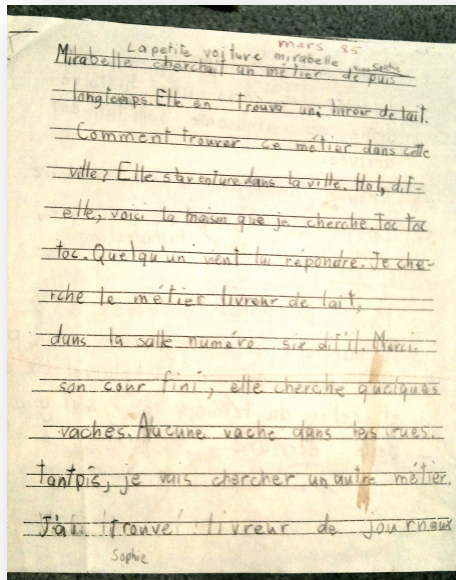 mars 85
La petite voiture mirabelle
Sophie
Mirabelle cherchait un métier de puis
longtemps. Elle en trouva un, livreur de lait.
Comment trouver ce métier dans cette
ville? Elle s'aventure dans la ville. Ho!, dit-
elle, voici la maison que je cherche. Toc toc
toc. Quelqu'un vient lui répondre. Je che-
rche le métier livreur de lait,
dans la salle numéro six dit'il. Merci.
son cour fini, elle cherche quelques
vaches. Aucune vache dans les rues.
tantpis, je vais chercher un autre métier.
J'ai trouvé livreur de journeux
Sophie